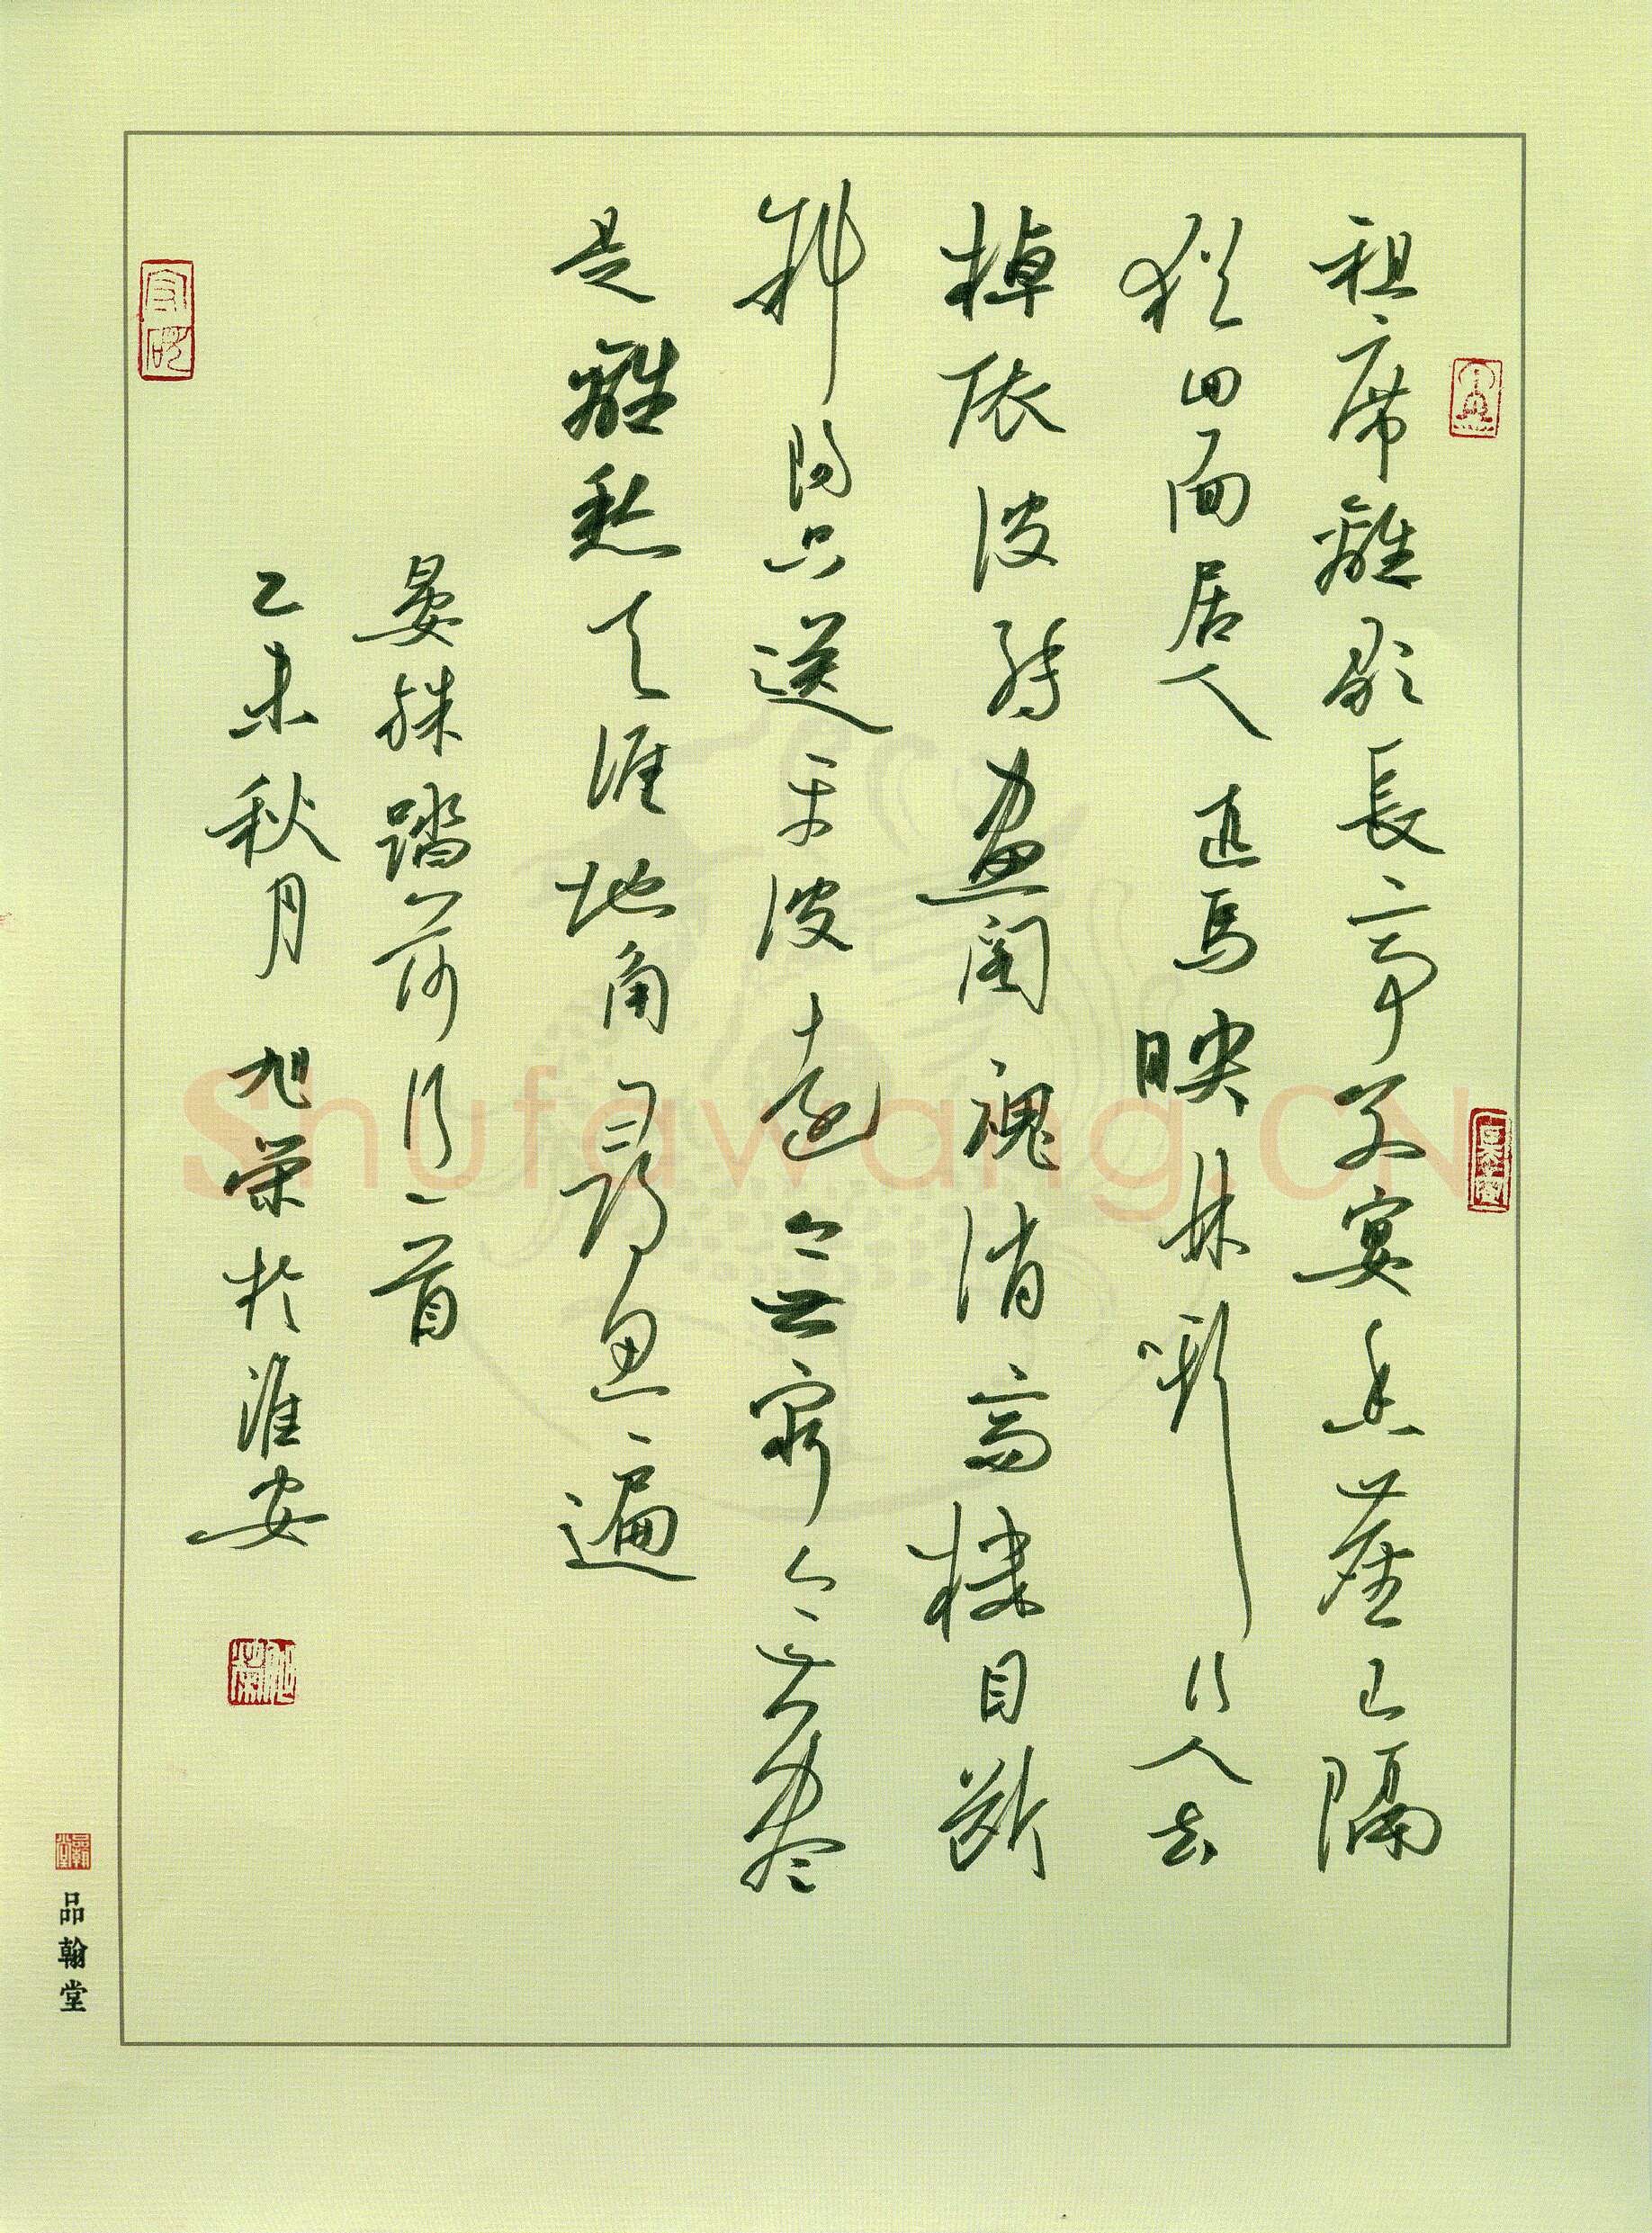 祖席離歌長亭别宴香塵已隔
猶回面居人匹馬映林嘶行人去
棹依波轉畫閣魂消高樓目斷
斜陽只送平波遠無窮無盡
是離愁天涯地角尋思遍
晏殊踏莎行一首
乙未秋月旭榮於淮安
品翰堂
Shufawang.CN